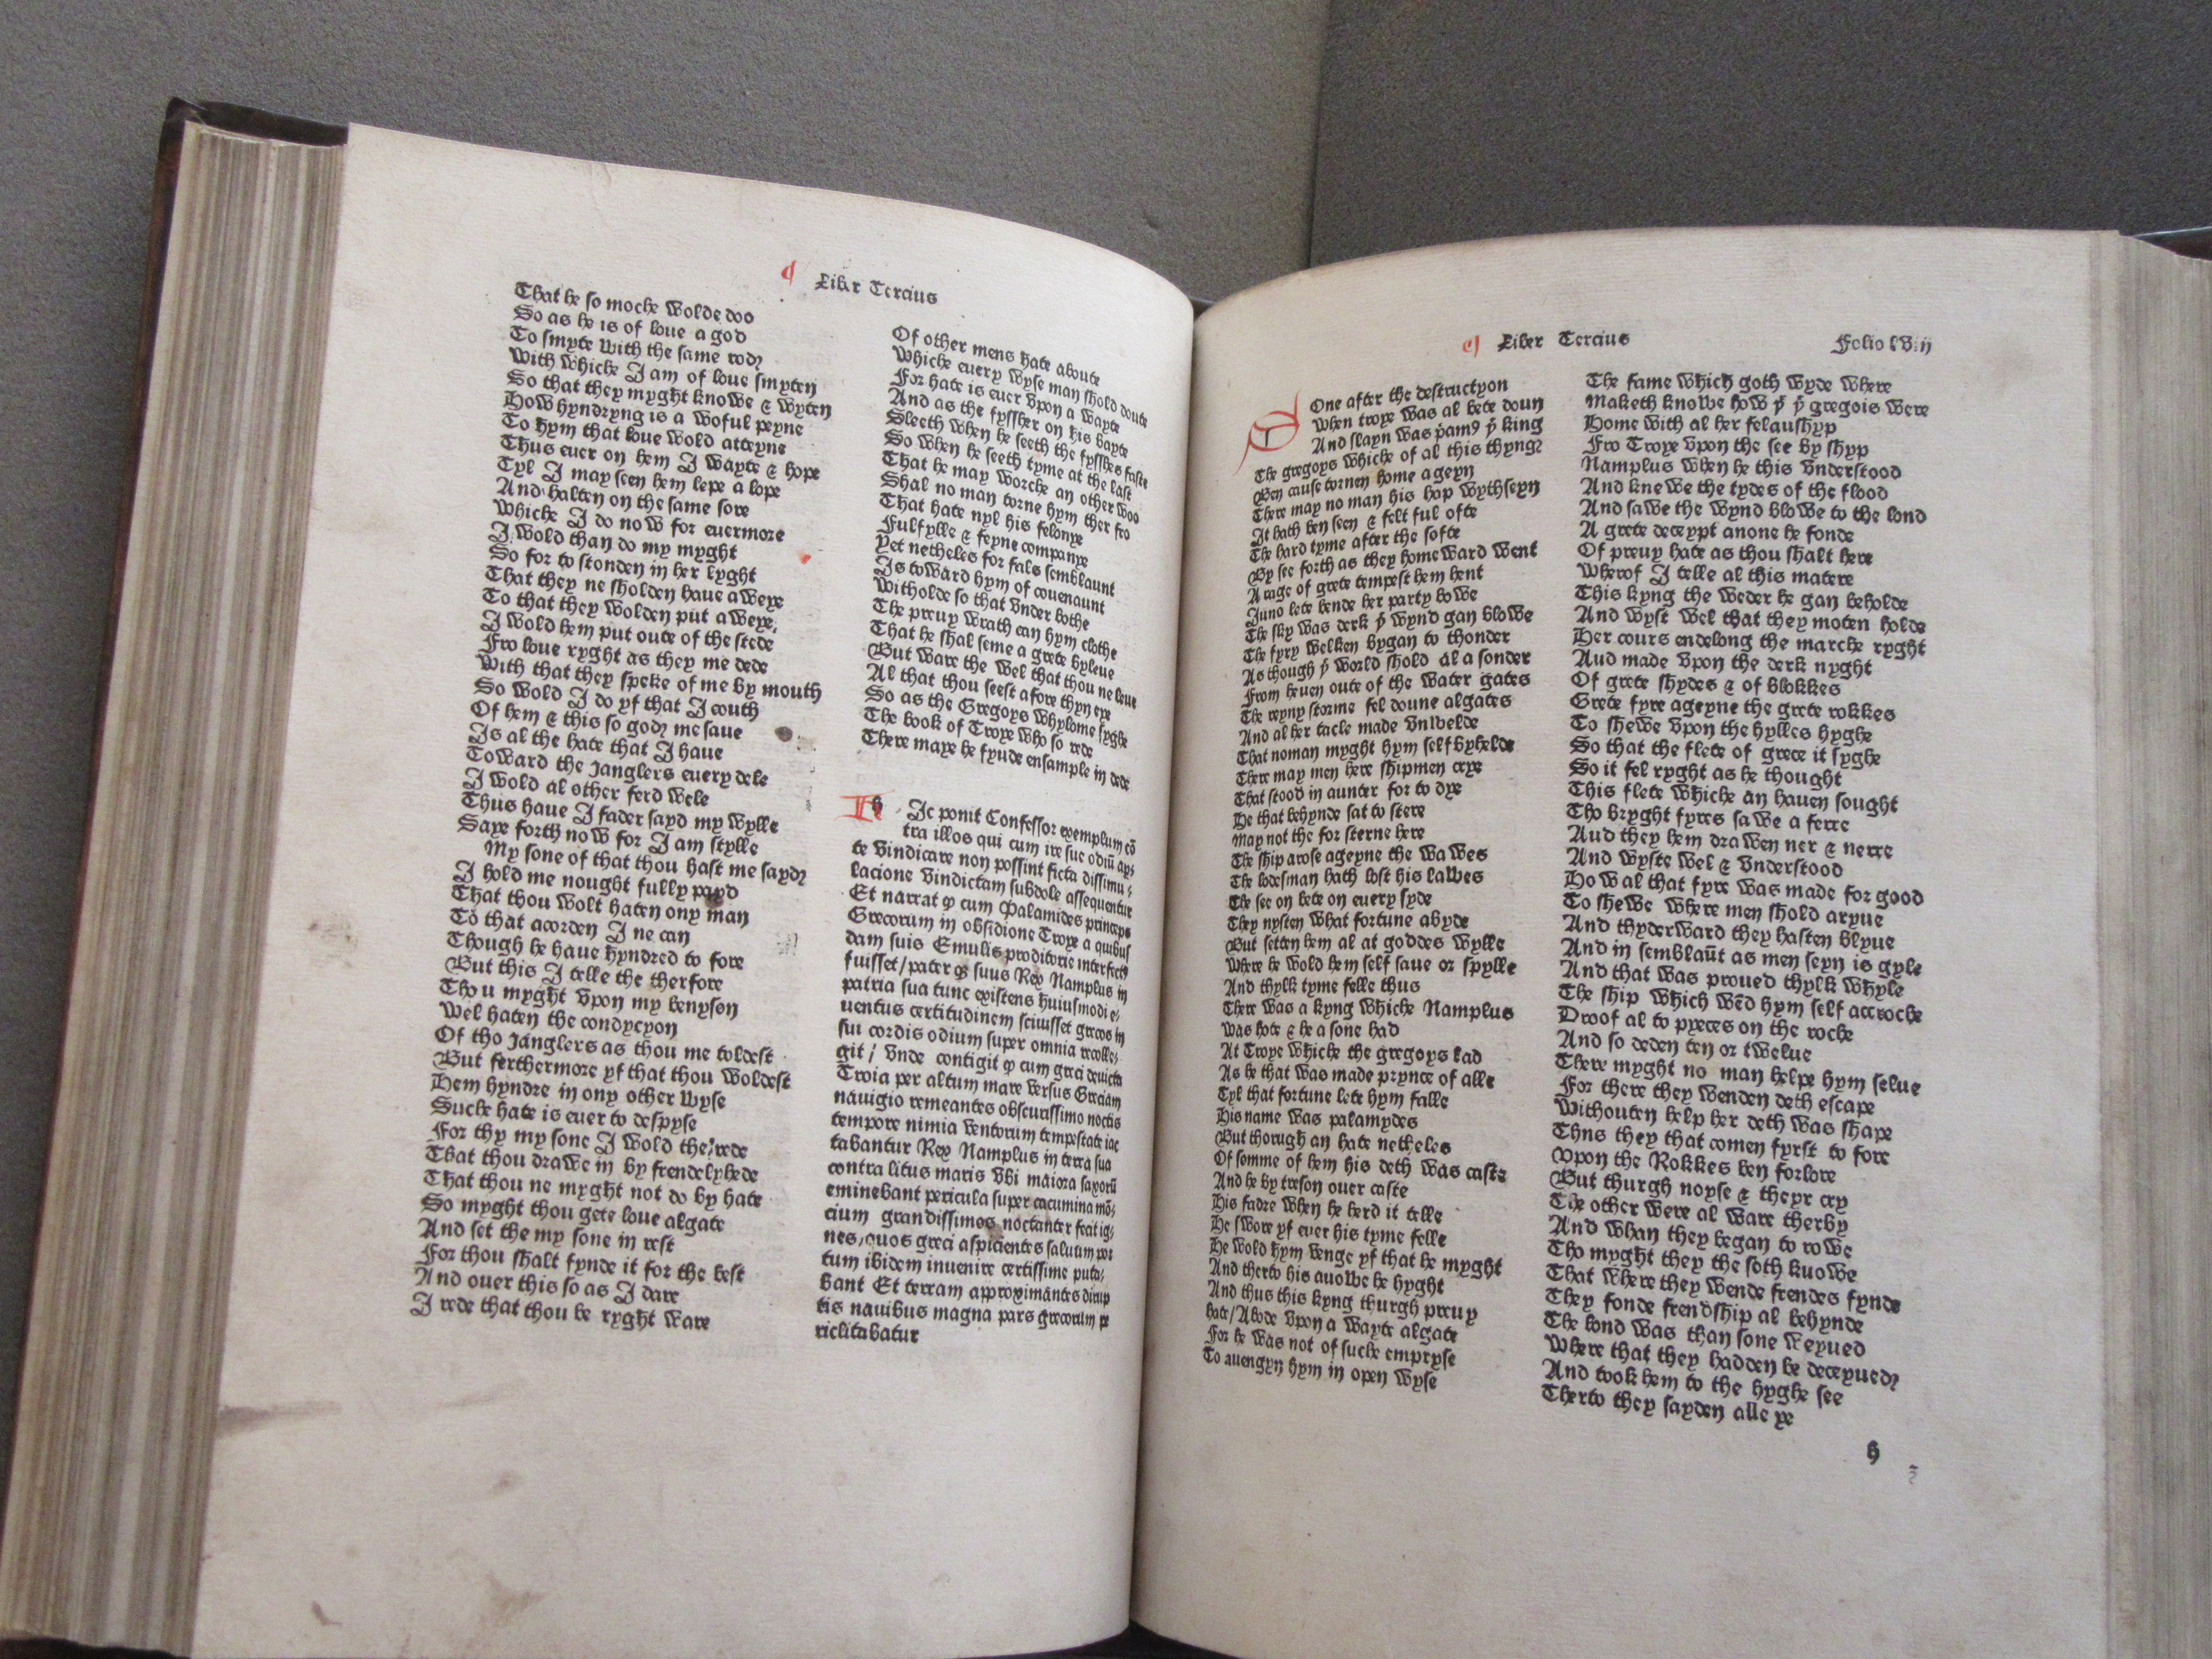 ¶ Liber Tercius
That he so moche wolde doo
So as he is of loue a god
To smyte with the same rodꝭ
With whiche I am of loue smyten
So that they myght knowe & wyten
How hyndryng is a woful peyne
To hym that loue wold atteyne
Thus euer on hem I wayte & hope
Tyl I may seen hem lepe a lope
And halten on the same sore
Whiche I do now for euermore
I wold than do my myght
So for to stonden in her lyght
That they ne sholden haue a weye
To that they wolden put a weye
I wold hem put oute of the stede
Fro loue ryght as they me dede
With that they speke of me by mouth
So wold I do yf that I couth
Of hem & this so godꝭ me saue
Is al the hate that I haue
Toward the Janglers euery dele
I wold al other ferd wele
Thus haue I fader sayd my wylle
Saye forth now for I am stylle
My sone of that thou hast me saydꝭ
I hold me nought fully payd
That thou wolt haten ony man
To that acorden I ne can
Though he haue hyndred to fore
But this I telle the therfore
Thou myght vpon my benyson
Wel haten the condycyon
Of tho Janglers as thou me toldest
But ferthermore yf that thou woldest
Hem hyndre in ony other wyse
Suche hate is euer to despyse
For thy my sone I wold the rede
That thou drawe in by frendelyhede
That thou ne myght not do by hate
So myght thou gete loue algate
And set the my sone in rest
For thou shalt fynde it for the best
And ouer this so as I dare
I rede that thou be ryght ware
Of other mens hate aboute
Whiche euery wyse man shold doute
For hate is euer vpon a wayte
And as the fyssher on his bayte
Sleeth when he seeth the fysshes faste
So when he seeth tyme at the last
That he may worche an other woo
Shal no man torne hym ther fro
That hate nyl his felonye
Fulfylle & feyne companye
Yet netheles for fals semblaunt
Is toward hym of couenaunt
Witholde so that vnder bothe
The preuy wrath can hym clothe
That he shal seme a grete byleue
But ware the wel that thou ne leue
Al that thou seest afore thyn eye
So as the Gregoys whylome syghe
The book of Troye who so rede
There maye he fyude ensample in dede
Hic ponit Confessor exemplum cō
tra illos qui cum ire sue odiū aꝑ
te vindicare non possint ficta dissimu
lacione vindictam subdole assequentur
Et narrat ꝙ cum Palamides princeps
Grecorum in obsidione Troye a quibus
dam suis Emulis proditorie interfectꝰ
fuisset/pater ꝙ suus Rex Namplus in
patria sua tunc existens huiusmodi e
uentus certitudinem sciuisset grecos in
sui cordis odium super omnia recolle
git/ Vnde contigit ꝙ cum greci deuicta
Troia per altum mare versus Greciam
nauigio remeantes obscurissimo noctis
tempore nimia ventorum tempestate iac
tabantur Rex Namplus in terra sua
contra litus maris vbi maiora saxorū
eminebant pericula super cacumina mō
cium grandissimos noctanter fecit ig
nes/quos greci aspicientes saluum por
tum ibidem inuenire certissime puta
bant Et terram approximantes dirup
tis nauibus magna pars grecorum pe
riclitabatur
¶ Liber Tercius Folio lviij
DOne after the destructyon
When troye was al bete doun
And slayn was p̄amꝰ þͤ king
The gregoys whiche of al this thyngꝭ
Ben cause tornen home ageyn
There may no man his hap wythseyn
It hath ben seen & felt ful ofte
The hard tyme after the softe
By see forth as they homeward went
A rage of grete tempest hem hent
Juno lete bende her party bowe
The sky was derk þͤ wynd gan blowe
The fyry welken bygan to thonder
As though þͤ world shold al a sonder
From heuen oute of the water gates
The reyny storme fel doune algates
And al her tacle made vnwelde
That noman myght hym self byhelde
There may men here shipmen crye
That stood in aunter for to dye
He that behynde sat to stere
May not the for sterne here
The ship arose ageyne the wawes
The lodesman hath lost his lawes
The see on bete on euery syde
They nysten what fortune abyde
But setten hem al at goddes wylle
Where he wold hem self saue or spylle
And thylk tyme felle thus
There was a kyng whiche Namplus
Was hote & he a sone had
At Troye whiche the gregoys lad
As he that was made prynce of alle
Tyl that fortune lete hym falle
His name was palamydes
But thorugh an hate netheles
Of somme of hem his deth was caste
And he by treson ouer caste
His fadre when he herd it telle
He swore yf euer his tyme felle
He wold hym venge yf that he myght
And therto his auowe he hyght
And thus this kyng thurgh preuy
hate/Abode vpon a wayte algate
For he was not of suche empryse
To auengyn hym in open wyse
The fame which goth wyde where
Maketh knowe how þͤ þͤ gregois were
Home with al her felauship
Fro Troye vpon the see by shyp
Namplus when he this vnderstood
And knewe the tydes of the flood
And sawe the wynd blowe to the lond
A grete deceypt anone he fonde
Of preuy hate as thou shalt here
Wherof I telle al this matere
This kyng the weder he gan beholde
And wyst wel that they moten holde
Her cours endelong the marche ryght
Aud made vpon the derk nyght
Of grete shydes & of blokkes
Grete fyre ageyne the grete rokkes
To shewe vpon the hylles hyghe
So that the flete of grece it syghe
So it fel ryght as he thought
This flete whiche an hauen sought
Tho bryght fyres sawe a ferre
Aud they hem drawen ner & nerre
And wyste wel & vnderstood
How al that fyre was made for good
To shewe where men shold aryue
And thyderward they hasten blyue
And in semblaūt as men seyn is gyle
And that was proued thylk whyle
The ship which wēd hym self accroche
Droof al to pyeces on the roche
And so deden ten or twelue
There myght no man helpe hym selue
For there they wenden deth escape
Withouten help her deth was shape
Thns they that comen fyrst to fore
Vpon the Rokkes ben forlore
But thurgh noyse & theyr cry
The other were al ware therby
And whan they began to rowe
Tho myght they the soth kuowe
That where they wende frendes fynde
They fonde frendship al behynde
The lond was than sone weyued
Where that they hadden be deceyuedꝭ
And took hem to the hyghe see
Therto they sayden alle ye
h